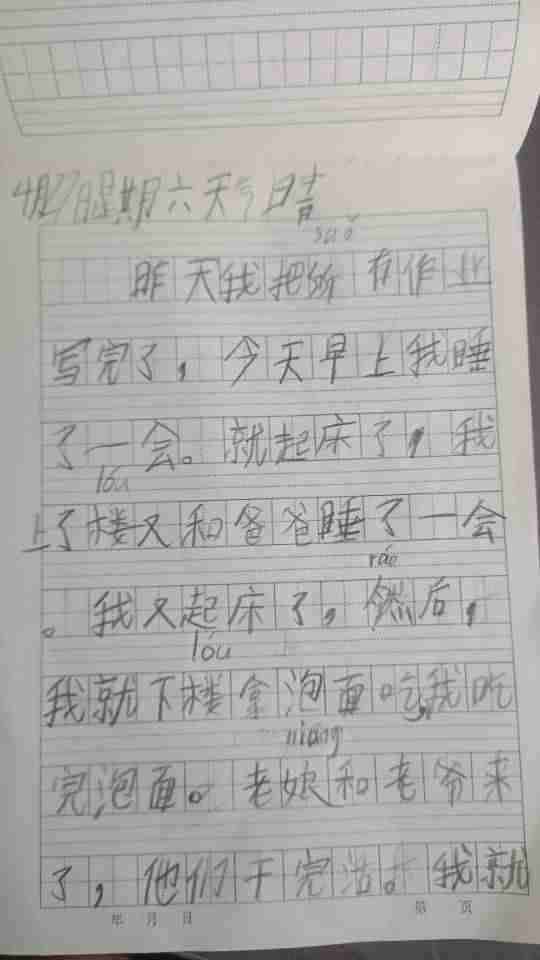 4月27日星期六天气晴
suǒ
昨天我把所有作业
写完了，今天早上我睡
了一会。就起床了，我
lóu
上了楼又和爸爸睡了一会
rán
。我又起床了，然后，
lóu
我就下楼拿泡面吃，我吃
niáng
完泡面。老娘和老爷来
了，他们干完活。我就
年 月 日 第 页